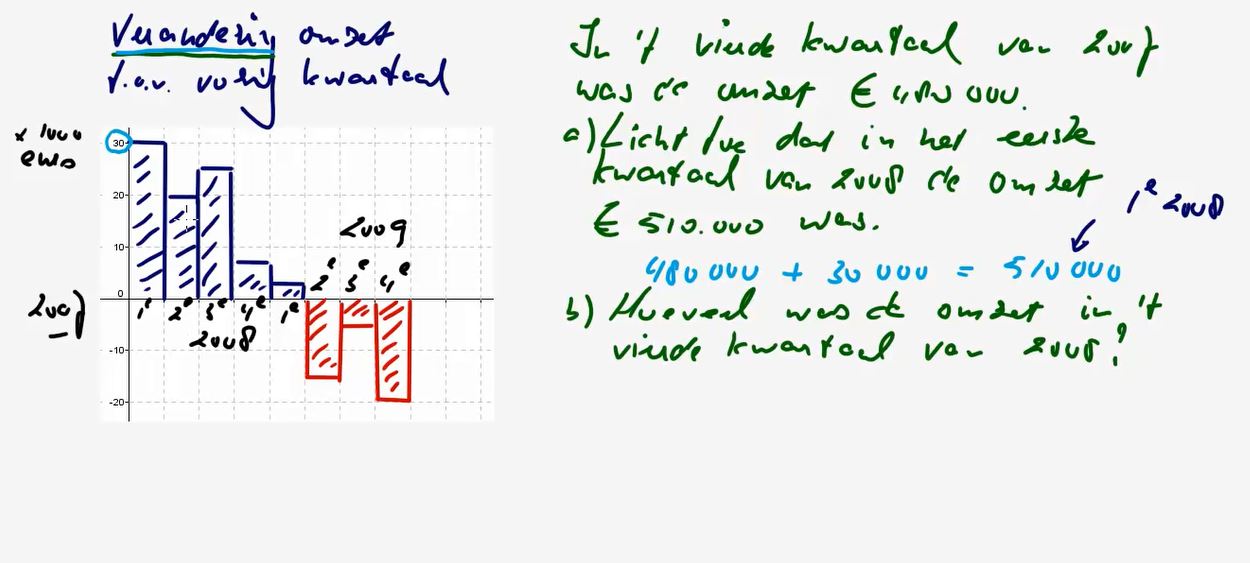 Verandering omzet
t.o.v. vorig kwartaal
x 1000
euro
30
20
10
0
-10
-20
2007
1e 2e 3e 4e 1e
2008
2009
2e 3e 4e
In 't vierde kwartaal van 2007
was de omzet € 480 000.
a) Licht toe dat in het eerste
kwartaal van 2008 de omzet
€ 510.000 was.
1e 2008
480 000 + 30 000 = 510 000
b) Hoeveel was de omzet in 't
vierde kwartaal van 2008?